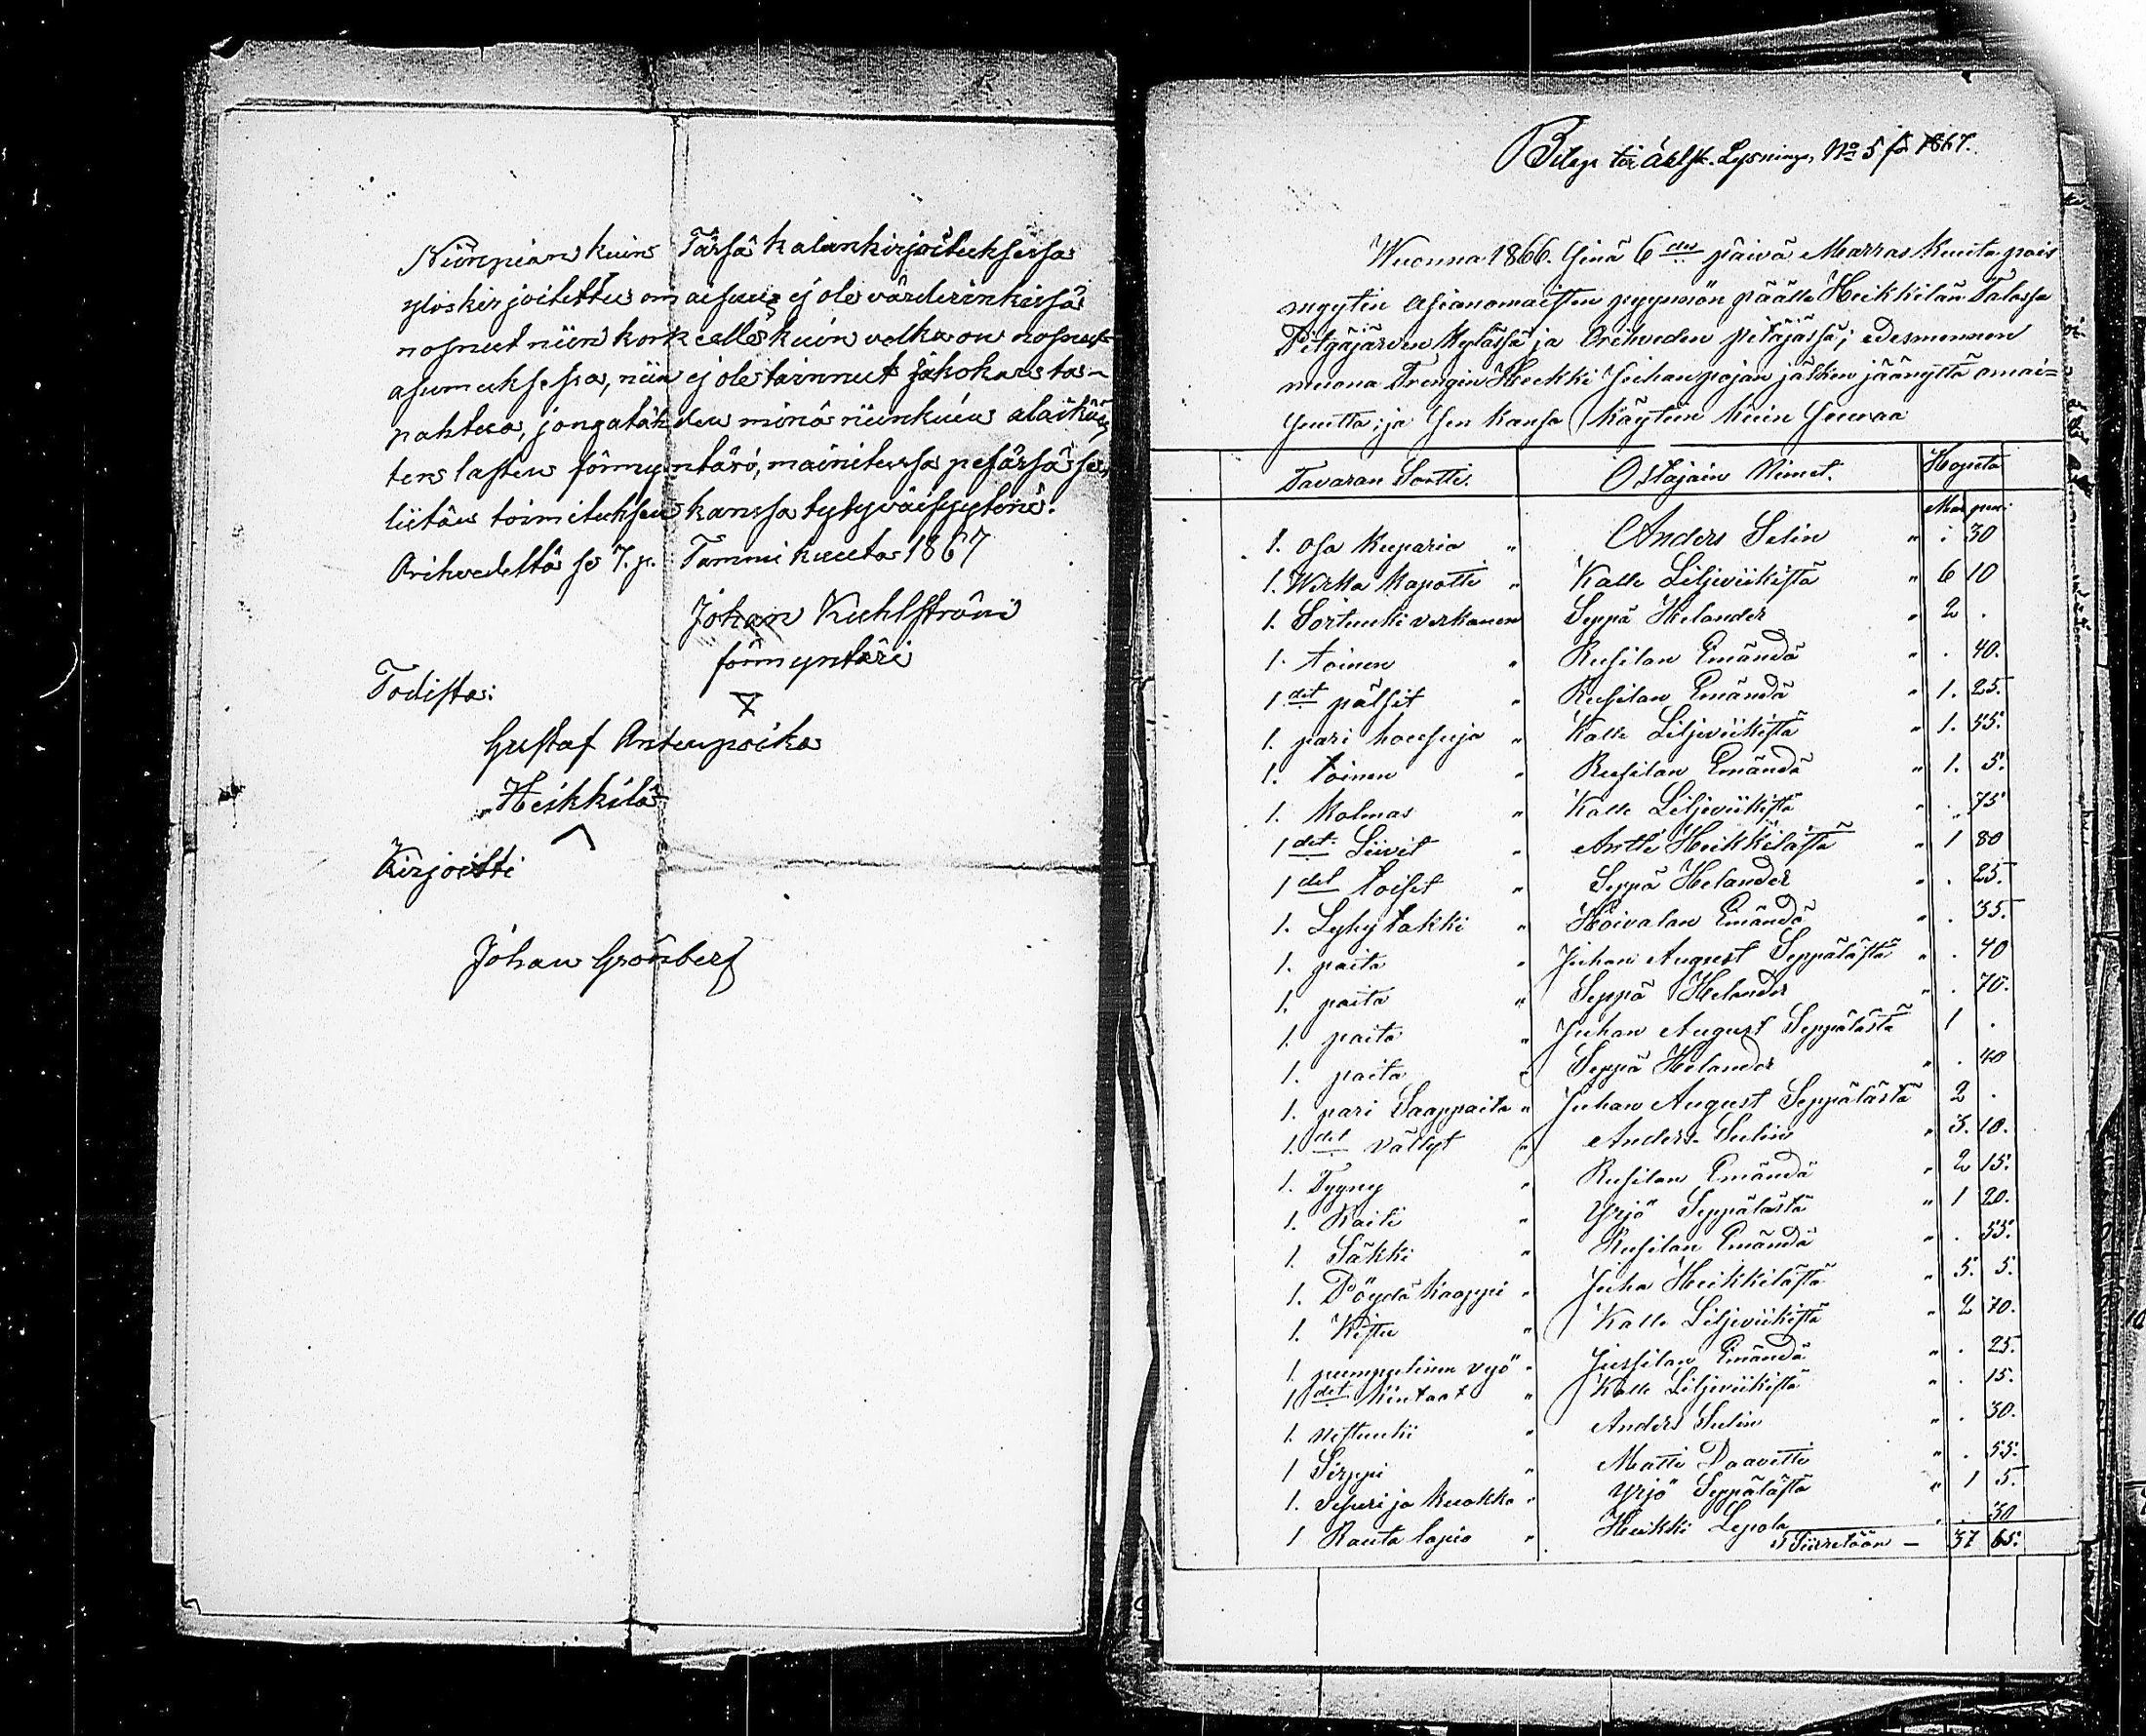 Niinpian kuin Tässä kalunkirjoituksessa
ylöskirjoitettu omaisuus ej ole värderinkissä
nosnut niin korkealle kuin velka on nosnut
asumuksessa, niin ej ole tainnut jakokunta ta-
pahtua, jongatähden minä niinkuin alaikäis
ten lasten förmyntäri, mainitussa pesässä se
liitän toimituksen kanssa tytyväisyyteni.
Orihvedeltä se 7. p. Tammi kuuta 1867
Johan Kuhlström
förmyntäri
Todistaa:
Gustaf Antunpoika
Heikkilä
Kirjoitti
Johan Grönberg
Bilaga till Årlsk. Lysninge, No 5 för 1867.
Wuonna 1866. Sinä 6 des päivä Marras Kuuta pois
myytin Asianomaisten pyynnön päälle Heikkilän Talossa
Pitgäjärven Kylässä ja Orihveden pitäjässä; edesmennen
muona Trengin Heikki Juhanpojan jälken jäänyttä omai=
suutta; ja sen kansa Käytiin kuin seuraa
Tavaran Sortti. Ostajain Nimet. Hopeta
Mar pen:
1. osa Kuparia " Anders Selin " : 30
1. Verka Kapotti " Kalle Liljeviikistä " 6 10
1. Sortuuki verkanen Seppä Helander " 2 .
1. toinen " Rusilan Emändä " . 40.
1 det pälsit " Rusilan Emändä " 1. 25.
1. pari housuja " Kalle Liljeviikistä " 1. 55.
1. toinen " Rusilan Emändä " 1. 5.
1. Kolmas " Kalle Liljeviikistä " . 75
1 det Liivit " Antti Heikkilästä " 1 80
1 det toiset " Seppä Helander " . 25.
1. Lyhy takki " Hoivalan Emändä " . 35.
1. paita " Juhan August Seppälästä " . 40
1. paita " Seppä Helander " . 70.
1. paita " Juhan August Seppälästä 1 .
1. paita " Seppä Helander " . 40
1. pari Saappaita " Juhan August Seppälästä 2 .
1. det Vällyt " Anders Selin " 3. 10.
1. Tyyny " Rusilan Emändä " 2 15.
1. Raiti " Yrjö Seppälästä " 1 20.
1. Säkki " Rusilan Emändä " . 55.
1. Pöydä Kaappi " Juha Heikkilästä " 5. 5.
1. Kistu " Kalle Liljeviikistä " 2 70.
1. pumpulinen vyö " Jussilan Emändä " . 25.
1 det Kintaat " Kalle Liljeviikistä " . 15.
1. " Anders Selin " . 30.
1 Sirppi " Matti Daavitti " . 55.
1. ja Kuokka " Yrjö Seppälästä " 1 5.
1 Rauta lapio " Heikki Lepola " . 30
Siiretään — 37 65.